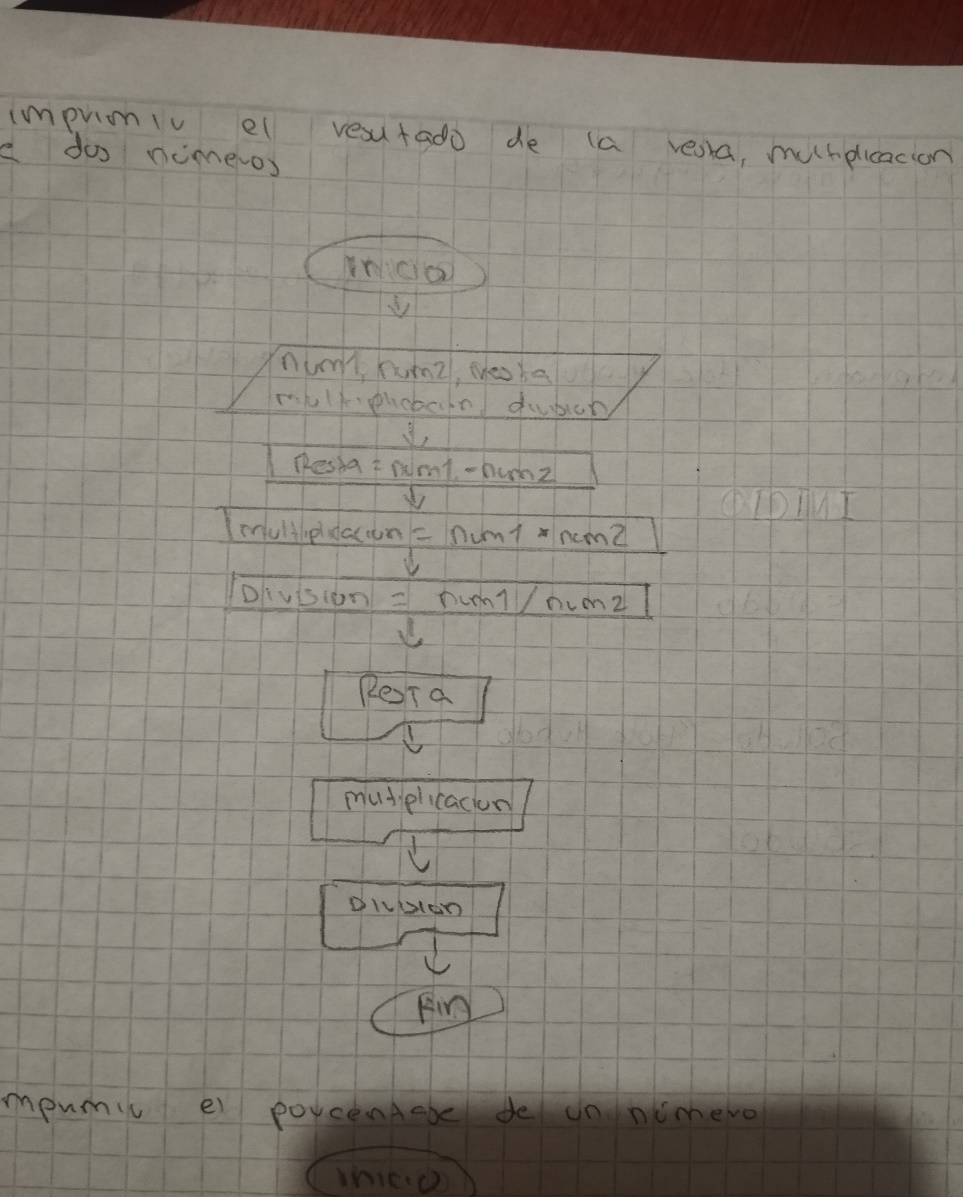 imprimir el resutado de la resta, multiplicacion
e dos números
inicio
num1, num2, resta
multiplicacion, division
Resta = num1 - num2
multiplicacion = num1 * num2
Division = num1 / num2
Resta
mutiplicacion
Division
Fin
mprimir el porcentaje de un número
inicio